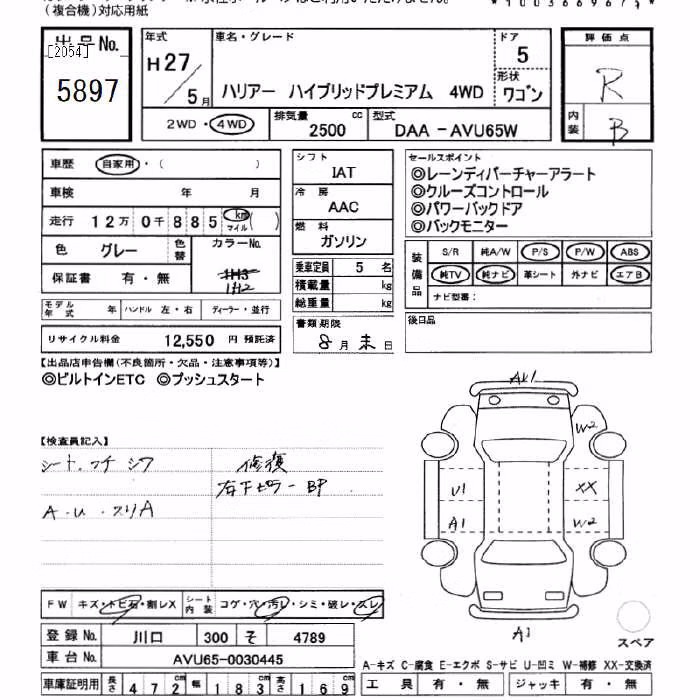 (複合機)対応用紙
出品No.
[2054]
5897
年式
H27/5月
車名・グレード
ハリアー ハイブリッドプレミアム 4WD
ドア
5
形状
ワゴン
評価点
R
内装
B
2WD・4WD
排気量
2500 cc
型式
DAA-AVU65W
車歴 自家用・( )
車検 年 月
走行 12万0千885 km マイル ( )
色 グレー 色替 カラーNo.
保証書 有・無 1H3 1H2
モデル年式 年 ハンドル 左・右 ディーラー・並行
リサイクル料金 12,550 円 預託済
シフト
IAT
冷房
AAC
燃料
ガソリン
乗車定員 5 名
積載量 kg
総重量 kg
書類期限
8月末日
セールスポイント
◎レーンディパーチャーアラート
◎クルーズコントロール
◎パワーバックドア
◎バックモニター
装備品
S/R 純A/W P/S P/W ABS
純TV 純ナビ 革シート 外ナビ エアB
ナビ型番:
後日品
【出品店申告欄(不良箇所・欠品・注意事項等)】
◎ビルトインETC ◎プッシュスタート
【検査員記入】
シート.フチ シワ
修復
右下ピラーBP
A.U.スリA
A1
W2
U1
XX
A1
W2
A1
スペア
FW キズ・トビ石・割レX シート内装 コゲ・穴・汚レ・シミ・破レ・スレ
登録No. 川口 300 そ 4789
車台No. AVU65-0030445
車庫証明用 長さ 472cm 幅 183cm 高さ 169cm
A-キズ C-腐食 E-エクボ S-サビ U-凹ミ W-補修 XX-交換済
工具 有・無 ジャッキ 有・無